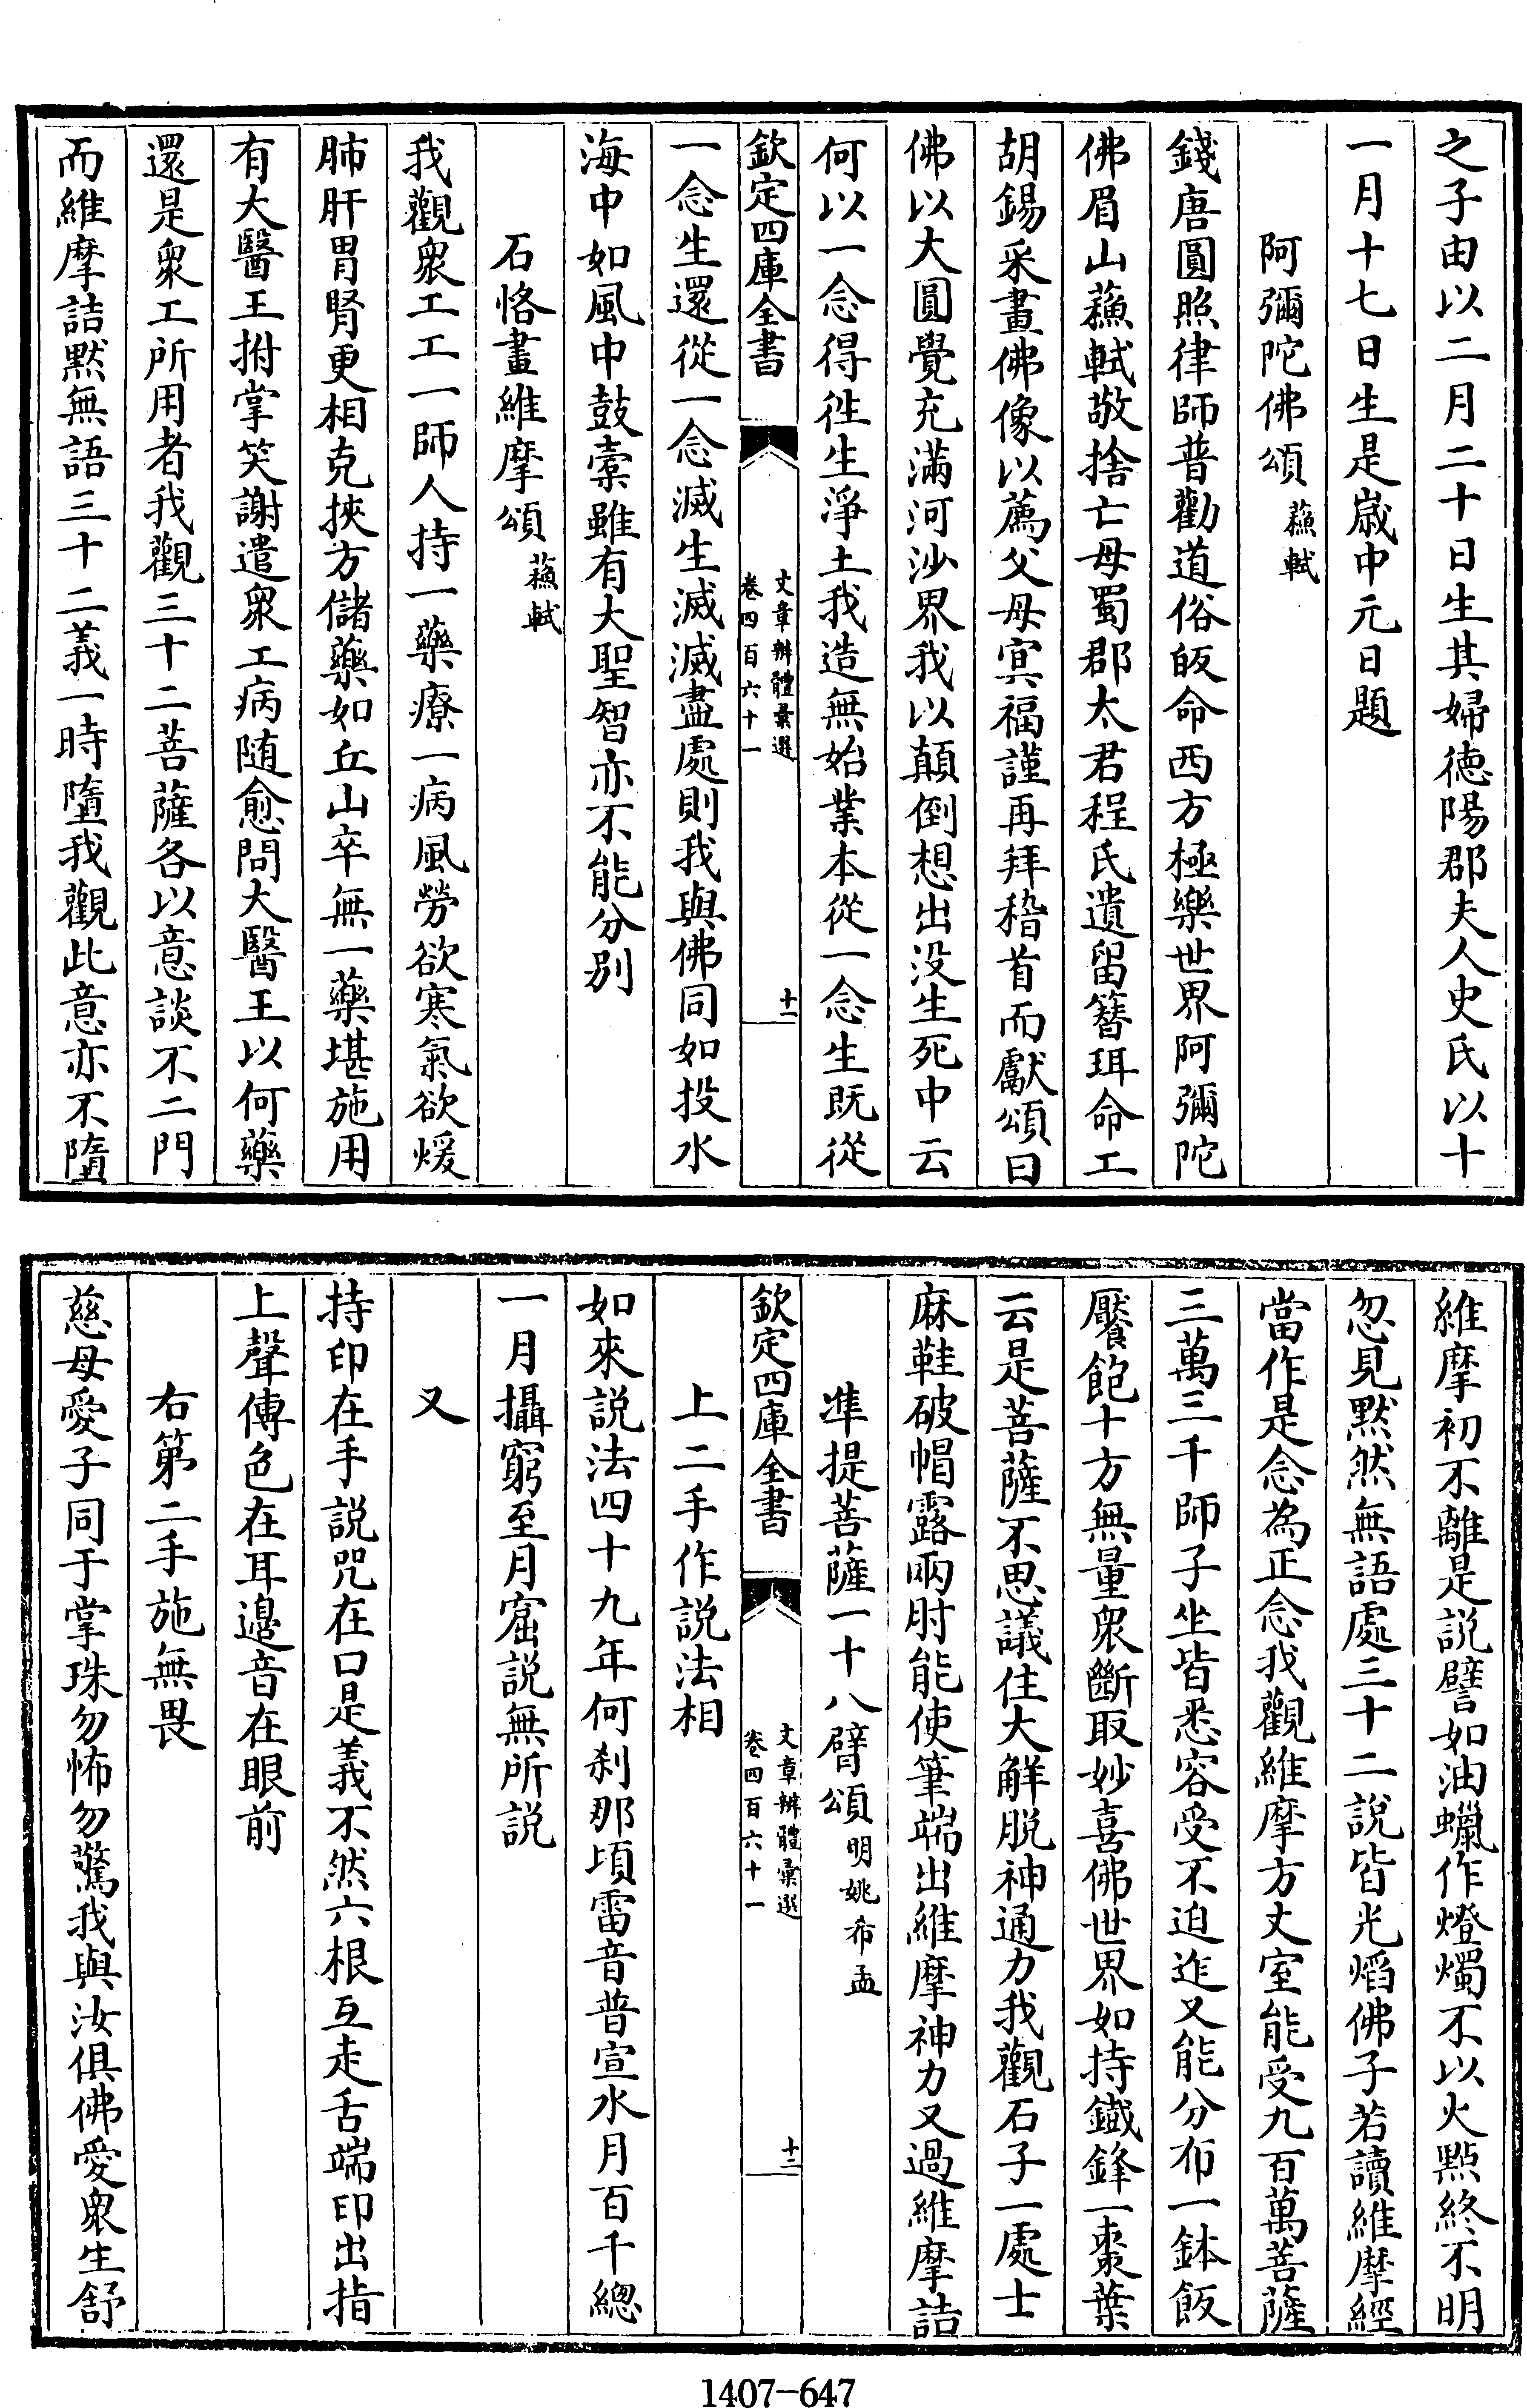 之子由以二月二十日生其婦徳陽郡夫人史氏以十
一月十七日生是嵗中元日題
阿彌陀佛頌蘓軾
錢唐圓照律師普勸道俗皈命西方極樂世界阿彌陀
佛眉山蘓軾敬捨亡母蜀郡太君程氏遺留簪珥命工
胡錫采畫佛像以薦父母㝠福謹再拜稽首而獻頌曰
佛以大圓覺充滿河沙界我以顛倒想出没生死中云
何以一念得徃生淨土我造無始業本從一念生既從
欽定四庫全書
文章辨體彚選
卷四百六十一
十一
一念生還從一念滅生滅滅盡處則我與佛同如投水
海中如風中鼓橐雖有大聖智亦不能分别
石恪畫維摩頌蘓軾
我觀衆工工一師人持一藥療一病風勞欲寒氣欲煖
肺肝胃腎更相克挾方儲藥如丘山卒無一藥堪施用
有大醫王拊掌笑謝遣衆工病随愈問大醫王以何藥
還是衆工所用者我觀三十二菩薩各以意談不二門
而維摩詰黙無語三十二義一時墮我觀此意亦不墮
維摩初不離是説譬如油蠟作燈燭不以火㸃終不明
忽見黙然無語處三十二說皆光焰佛子若讀維摩經
當作是念為正念我觀維摩方丈室能受九百萬菩薩
三萬三千師子坐皆悉容受不迫迮又能分布一鉢飯
饜飽十方無量衆斷取妙喜佛世界如持鍼鋒一棗葉
云是菩薩不思議住大解脱神通力我觀石子一處士
麻鞋破帽露兩肘能使筆端出維摩神力又過維摩詰
凖提菩薩一十八臂頌明姚希孟
欽定四庫全書
文章辨體彚選
卷四百六十一
十二
上二手作説法相
如來説法四十九年何刹那頃雷音普宣水月百千總
一月攝窮至月窟説無所説
又
持印在手説咒在口是義不然六根互走舌端印出指
上聲傳色在耳邉音在眼前
右第二手施無畏
慈母愛子同于掌珠勿怖勿驚我與汝俱佛愛衆生舒
1407-647